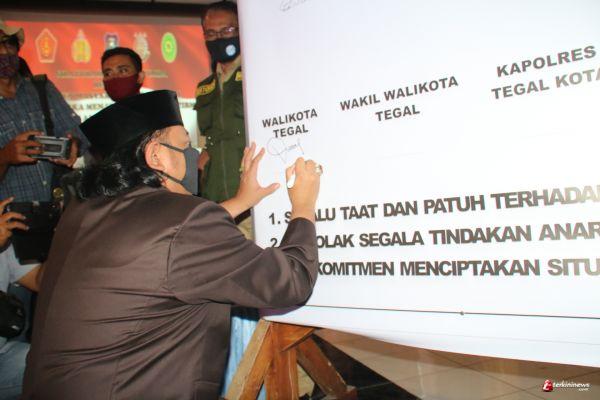 WALIKOTA
TEGAL
WAKIL WALIKOTA
TEGAL
KAPOLRES
TEGAL KOTA
1. S LALU TAAT DAN PATUH TERHADA
2. OLAK SEGALA TINDAKAN ANAR
KOMITMEN MENCIPTAKAN SITU
terkininews
.com